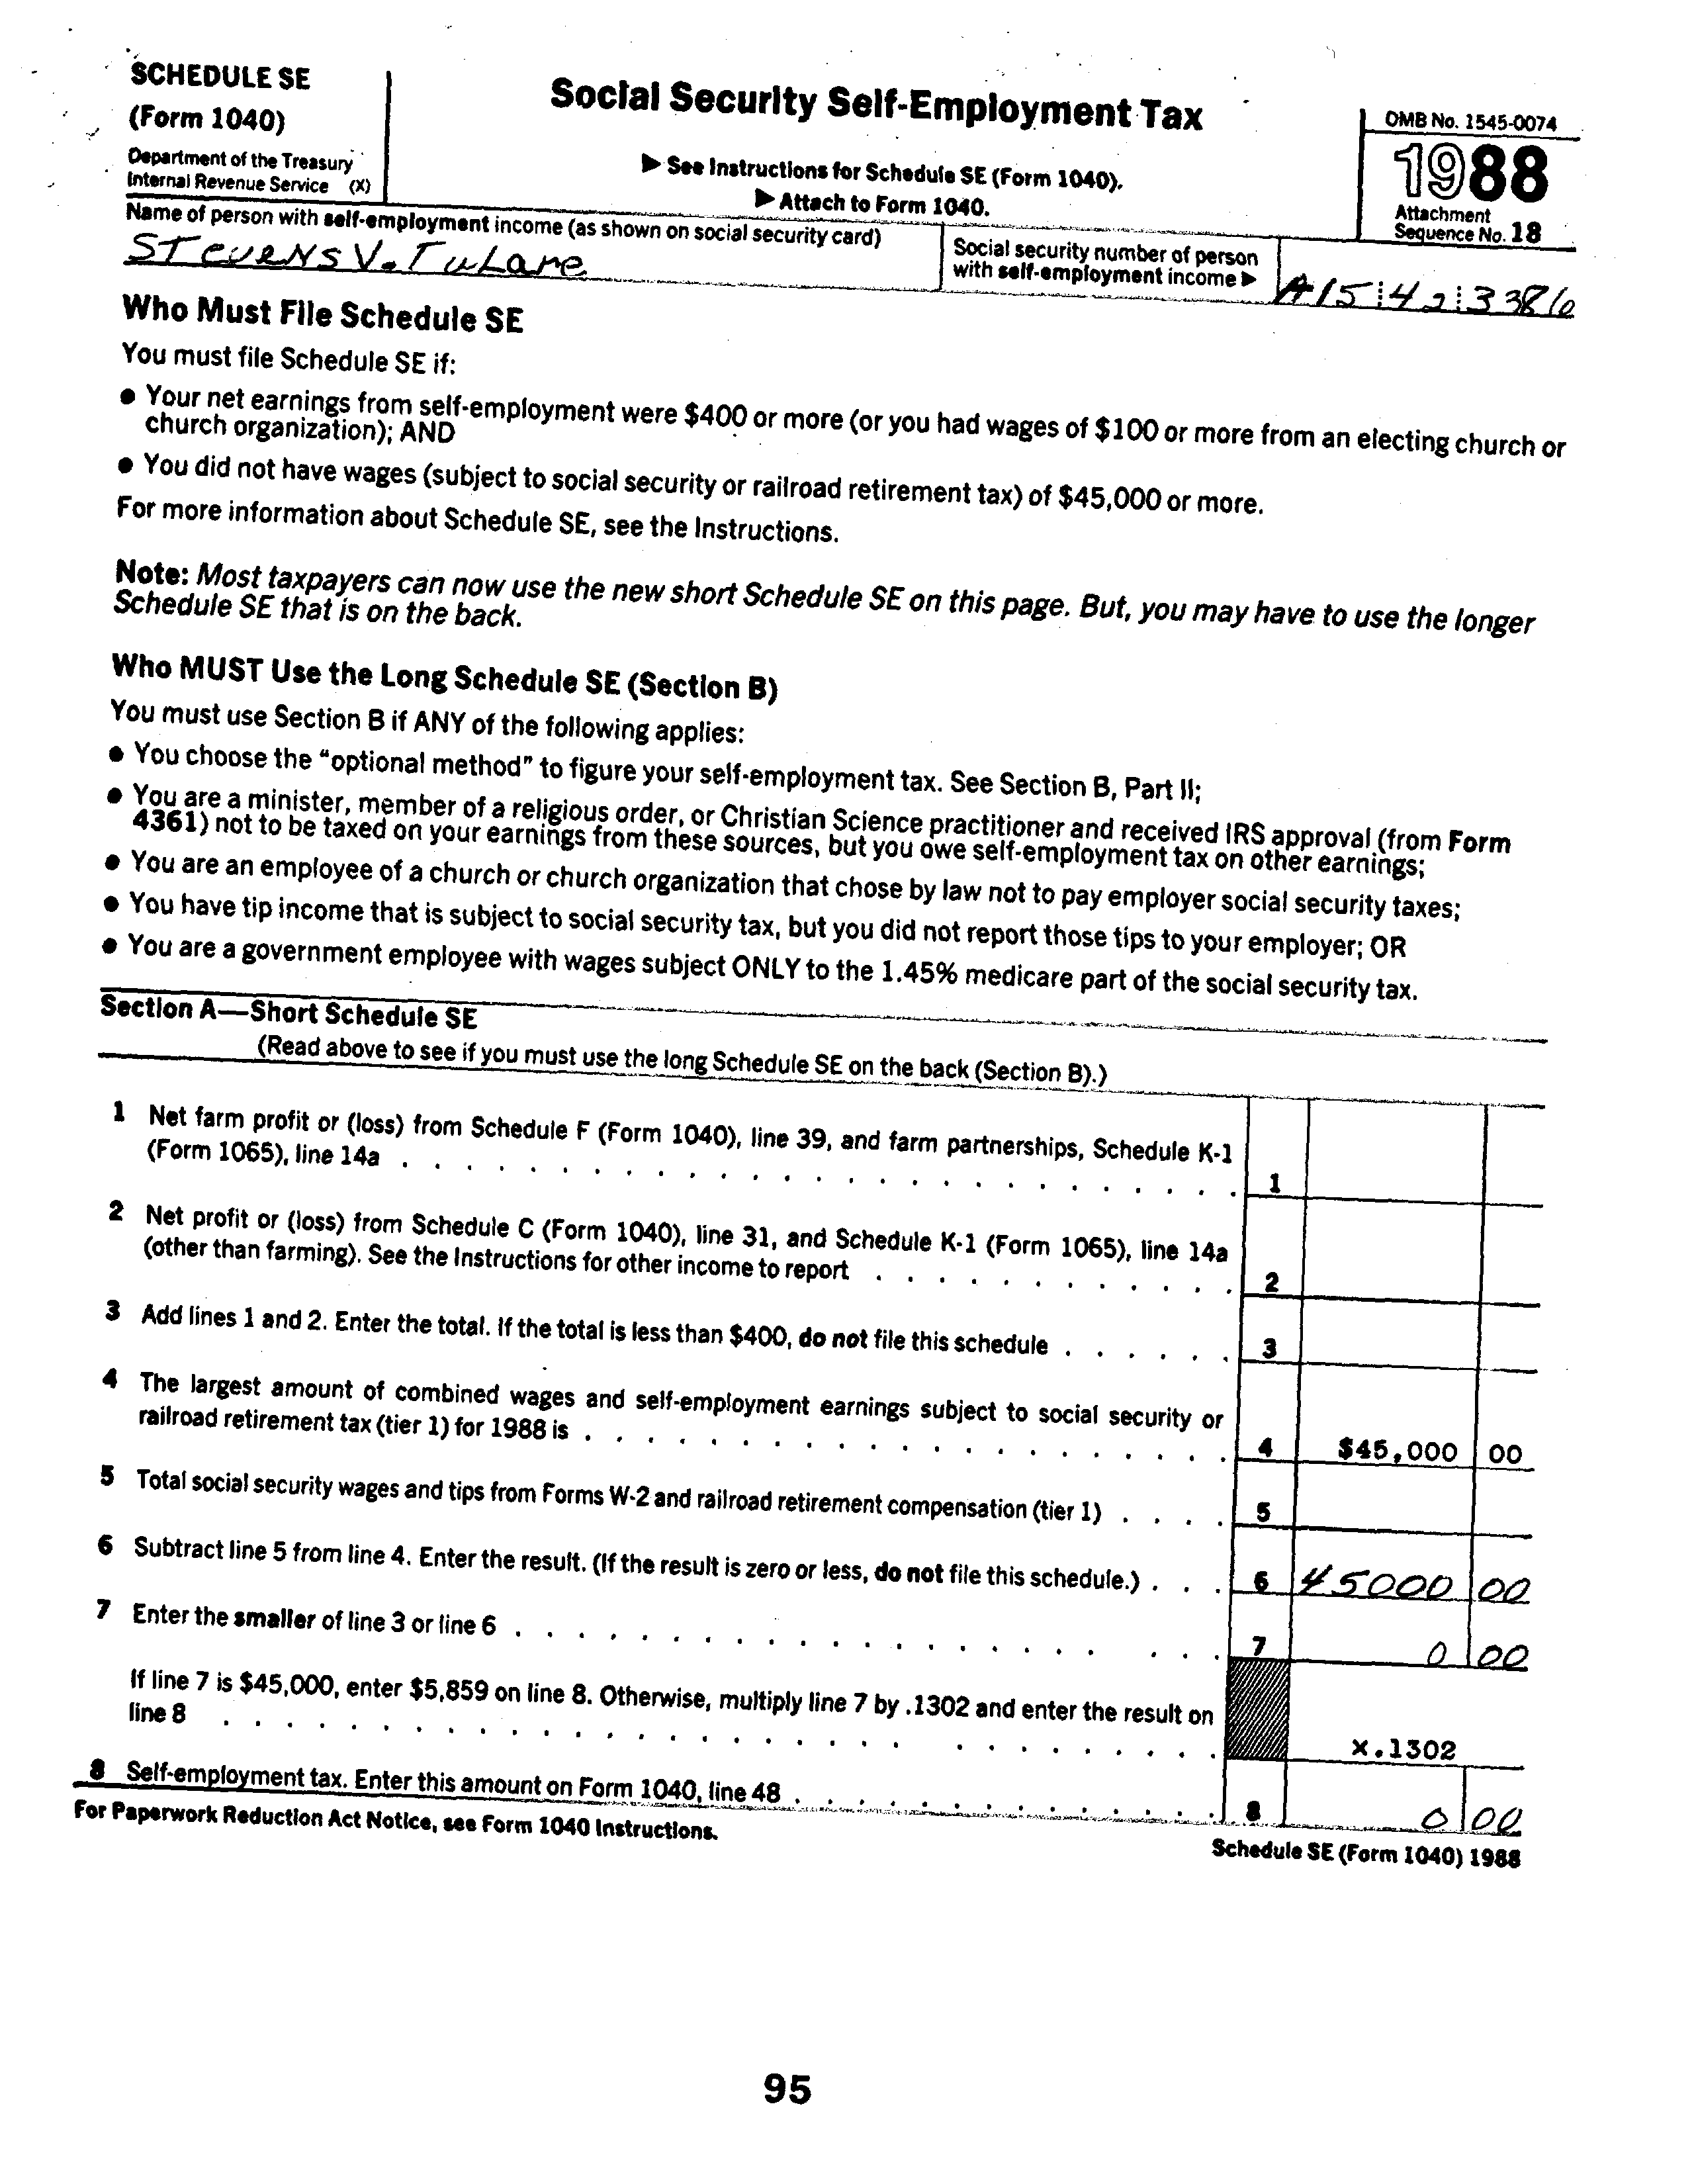 SCHEDULE SE
(Form 1040)
Department of the Treasury
Internal Revenue Service (X)
Social Security Self-Employment Tax
▶ See Instructions for Schedule SE (Form 1040).
▶ Attach to Form 1040.
OMB No. 1545-0074
1988
Attachment
Sequence No. 18
Name of person with self-employment income (as shown on social security card)
STEVENS V. TULARE
Social security number of person
with self-employment income ▶
A15 42 3386
Who Must File Schedule SE
You must file Schedule SE if:
● Your net earnings from self-employment were $400 or more (or you had wages of $100 or more from an electing church or
church organization); AND
● You did not have wages (subject to social security or railroad retirement tax) of $45,000 or more.
For more information about Schedule SE, see the Instructions.
Note: Most taxpayers can now use the new short Schedule SE on this page. But, you may have to use the longer
Schedule SE that is on the back.
Who MUST Use the Long Schedule SE (Section B)
You must use Section B if ANY of the following applies:
● You choose the “optional method” to figure your self-employment tax. See Section B, Part II;
● You are a minister, member of a religious order, or Christian Science practitioner and received IRS approval (from Form
4361) not to be taxed on your earnings from these sources, but you owe self-employment tax on other earnings;
● You are an employee of a church or church organization that chose by law not to pay employer social security taxes;
● You have tip income that is subject to social security tax, but you did not report those tips to your employer; OR
● You are a government employee with wages subject ONLY to the 1.45% medicare part of the social security tax.
Section A—Short Schedule SE
(Read above to see if you must use the long Schedule SE on the back (Section B).)
1 Net farm profit or (loss) from Schedule F (Form 1040), line 39, and farm partnerships, Schedule K-1
(Form 1065), line 14a . . . . . . . . . . 1
2 Net profit or (loss) from Schedule C (Form 1040), line 31, and Schedule K-1 (Form 1065), line 14a
(other than farming). See the Instructions for other income to report . . . . . . . . . . 2
3 Add lines 1 and 2. Enter the total. If the total is less than $400, do not file this schedule . . . . . . 3
4 The largest amount of combined wages and self-employment earnings subject to social security or
railroad retirement tax (tier 1) for 1988 is . . . . . . . . . . 4 $45,000 00
5 Total social security wages and tips from Forms W-2 and railroad retirement compensation (tier 1) . . . . 5
6 Subtract line 5 from line 4. Enter the result. (If the result is zero or less, do not file this schedule.) . . . 6 45000 00
7 Enter the smaller of line 3 or line 6 . . . . . . . . . . 7 0 00
If line 7 is $45,000, enter $5,859 on line 8. Otherwise, multiply line 7 by .1302 and enter the result on
line 8 . . . . . . . . . . x.1302
8 Self-employment tax. Enter this amount on Form 1040, line 48 . . . . . . . . . . 8 0 00
For Paperwork Reduction Act Notice, see Form 1040 Instructions.
Schedule SE (Form 1040) 1988
95